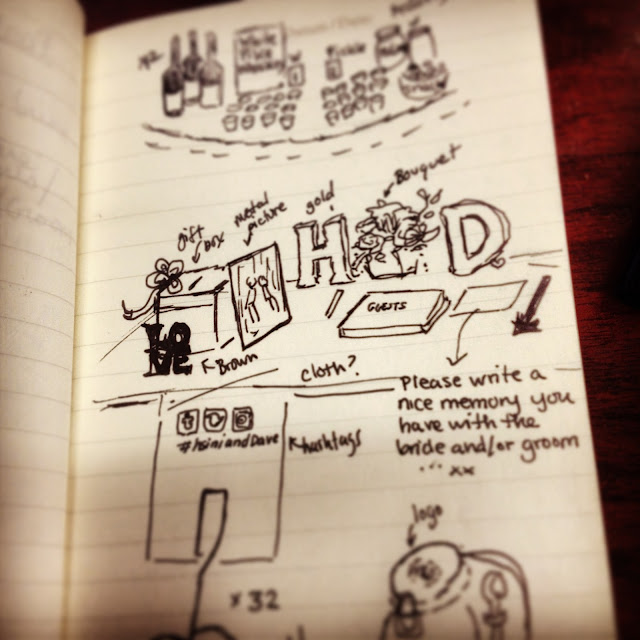 x2
Pickle
gift
box
metal
picture
gold
Bouquet
H D
LO
VE
K Brown
GUESTS
cloth?
Please write a
nice memory you
have with the
bride and/or groom
... xx
#hsiniandDave
hashtags
logo
x 32